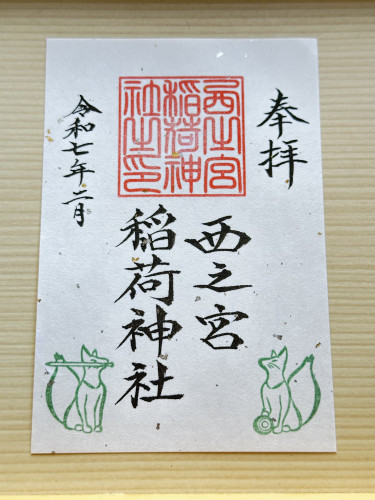 奉拝
西之宮
稲荷神
社之印
西之宮
稲荷神社
令和七年二月